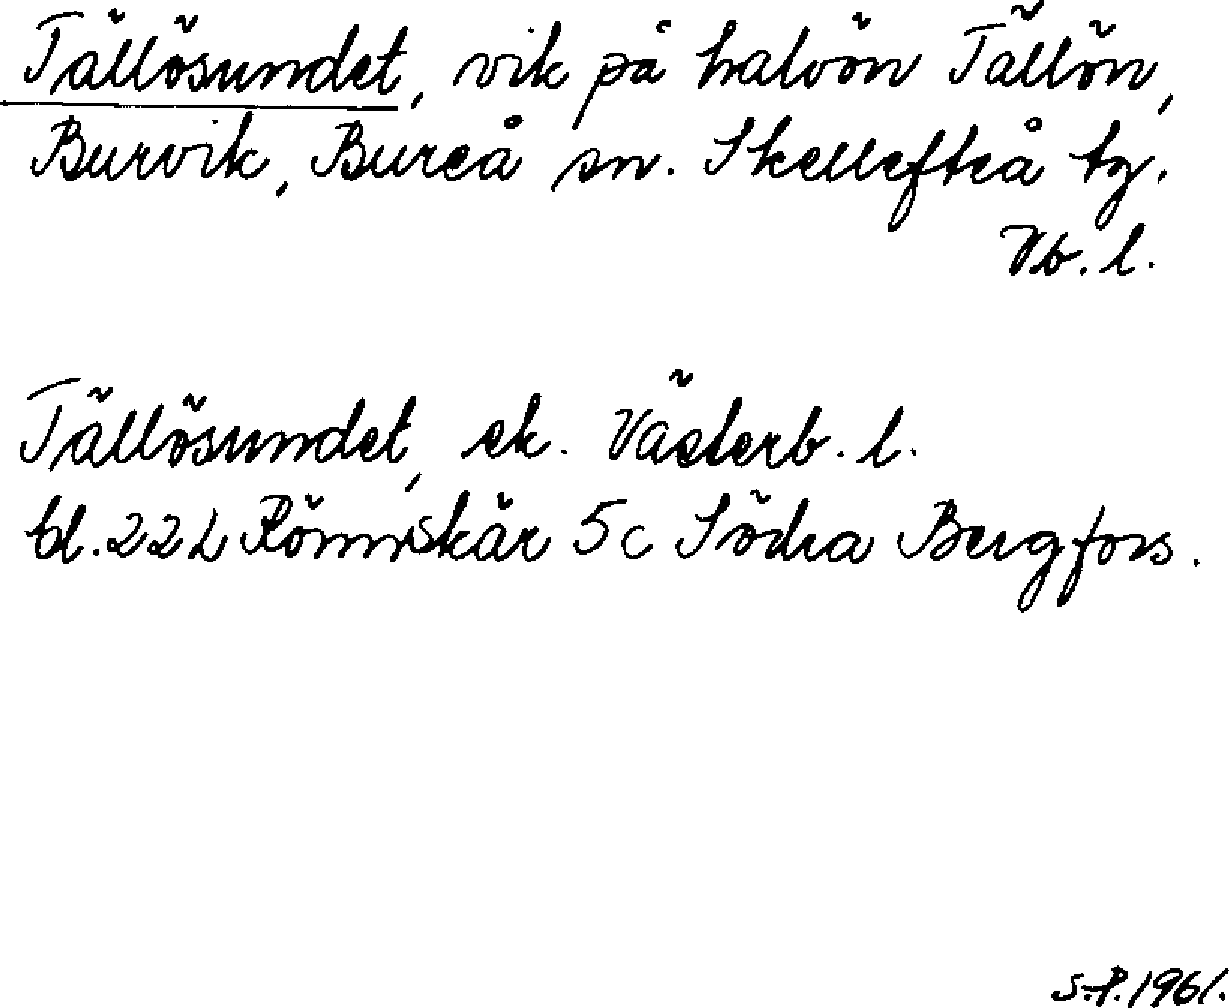 Tällösundet, vik på halvön Tällön,
Burvik, Bureå sn. Skellefteå tg.
Vb. l.
Tällösundet, ek. Västerb. l.
bl. 22 L Rönnskär 5c Södra Bergfors.
S.P. 1961.